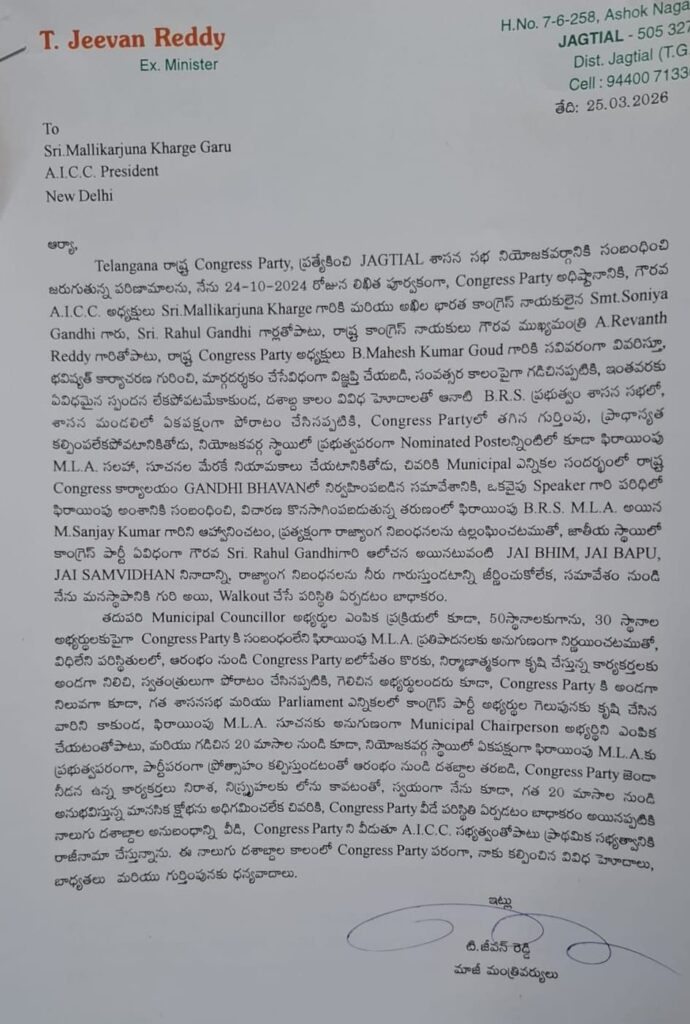 T. Jeevan Reddy
Ex. Minister
H.No. 7-6-258, Ashok Naga
JAGTIAL - 505 327
Dist. Jagtial (T.G.
Cell : 94400 7133
తేది: 25.03.2026
To
Sri.Mallikarjuna Kharge Garu
A.I.C.C. President
New Delhi
ఆర్యా,
Telangana రాష్ట్ర Congress Party, ప్రత్యేకించి JAGTIAL శాసన సభ నియోజకవర్గానికి సంబంధించి
జరుగుతున్న పరిణామాలను, నేను 24-10-2024 రోజున లిఖిత పూర్వకంగా, Congress Party అధిష్టానానికి, గౌరవ
A.I.C.C. అధ్యక్షులు Sri.Mallikarjuna Kharge గారికి మరియు అఖిల భారత కాంగ్రెస్ నాయకులైన Smt.Soniya
Gandhi గారు, Sri. Rahul Gandhi గార్లతోపాటు, రాష్ట్ర కాంగ్రెస్ నాయకులు గౌరవ ముఖ్యమంత్రి A.Revanth
Reddy గారితోపాటు, రాష్ట్ర Congress Party అధ్యక్షులు B.Mahesh Kumar Goud గారికి సవివరంగా వివరిస్తూ,
భవిష్యత్ కార్యాచరణ గురించి, మార్గదర్శకం చేసేవిధంగా విజ్ఞప్తి చేయబడి, సంవత్సర కాలంపైగా గడిచినప్పటికి, ఇంతవరకు
ఏవిధమైన స్పందన లేకపోవటమేకాకుండ, దశాబ్ద కాలం వివిధ హెూదాలతో ఆనాటి B.R.S. ప్రభుత్వం శాసన సభలో,
శాసన మండలిలో ఏకపక్షంగా పోరాటం చేసినప్పటికి, Congress Partyలో తగిన గుర్తింపు, ప్రాధాన్యత
కల్పింపలేకపోవటానికితోడు, నియోజకవర్గ స్థాయిలో ప్రభుత్వపరంగా Nominated Postలన్నింటిలో కూడా ఫిరాయింపు
M.L.A. సలహా, సూచనల మేరకే నియామకాలు చేయటానికితోడు, చివరికి Municipal ఎన్నికల సందర్భంలో రాష్ట్ర
Congress కార్యాలయం GANDHI BHAVANలో నిర్వహింపబడిన సమావేశానికి, ఒకవైపు Speaker గారి పరిధిలో
ఫిరాయింపు అంశానికి సంబంధించి, విచారణ కొనసాగింపబడుతున్న తరుణంలో ఫిరాయింపు B.R.S. M.L.A. అయిన
M.Sanjay Kumar గారిని ఆహ్వానించటం, ప్రత్యక్షంగా రాజ్యాంగ నిబంధనలను ఉల్లంఘించటముతో, జాతీయ స్థాయిలో
కాంగ్రెస్ పార్టీ ఏవిధంగా గౌరవ Sri. Rahul Gandhiగారి ఆలోచన అయినటువంటి JAI BHIM, JAI BAPU,
JAI SAMVIDHAN నినాదాన్ని, రాజ్యాంగ నిబంధనలను నీరు గారుస్తుండటాన్ని జీర్ణించుకోలేక, సమావేశం నుండి
నేను మనస్థాపానికి గురి అయి, Walkout చేసే పరిస్థితి ఏర్పడటం బాధాకరం.
తదుపరి Municipal Councillor అభ్యర్థుల ఎంపిక ప్రక్రియలో కూడా, 50స్థానాలకుగాను, 30 స్థానాల
అభ్యర్థులకుపైగా Congress Party కి సంబంధంలేని ఫిరాయింపు M.L.A. ప్రతిపాదనలకు అనుగుణంగా నిర్ణయించటముతో,
విధిలేని పరిస్థితులలో, ఆరంభం నుండి Congress Party బలోపేతం కొరకు, నిర్మాణాత్మకంగా కృషి చేస్తున్న కార్యకర్తలకు
అండగా నిలిచి, స్వతంత్రులుగా పోరాటం చేసినప్పటికి, గెలిచిన అభ్యర్థులందరు కూడా, Congress Party కి అండగా
నిలువగా కూడా, గత శాసనసభ మరియు Parliament ఎన్నికలలో కాంగ్రెస్ పార్టీ అభ్యర్థుల గెలుపునకు కృషి చేసిన
వారిని కాకుండ, ఫిరాయింపు M.L.A. సూచనకు అనుగుణంగా Municipal Chairperson అభ్యర్థిని ఎంపిక
చేయటంతోపాటు, మరియు గడిచిన 20 మాసాల నుండి కూడా, నియోజకవర్గ స్థాయిలో ఏకపక్షంగా ఫిరాయింపు M.L.A.కు
ప్రభుత్వపరంగా, పార్టీపరంగా ప్రోత్సాహం కల్పిస్తుండటంతో ఆరంభం నుండి దశబ్దాల తరబడి, Congress Party జెండా
నీడన ఉన్న కార్యకర్తలు నిరాశ, నిస్పృహలకు లోను కావటంతో, స్వయంగా నేను కూడా, గత 20 మాసాల నుండి
అనుభవిస్తున్న మానసిక క్షోభను అధిగమించలేక చివరికి, Congress Party వీడే పరిస్థితి ఏర్పడటం బాధాకరం అయినప్పటికి
నాలుగు దశాబ్దాల అనుబంధాన్ని వీడి, Congress Party ని వీడుతూ A.I.C.C. సభ్యత్వంతోపాటు ప్రాథమిక సభ్యత్వానికి
రాజీనామా చేస్తున్నాను. ఈ నాలుగు దశాబ్దాల కాలంలో Congress Party పరంగా, నాకు కల్పించిన వివిధ హెూదాలు,
బాధ్యతలు మరియు గుర్తింపునకు ధన్యవాదాలు.
ఇట్లు
టి.జీవన్ రెడ్డి
మాజీ మంత్రివర్యులు